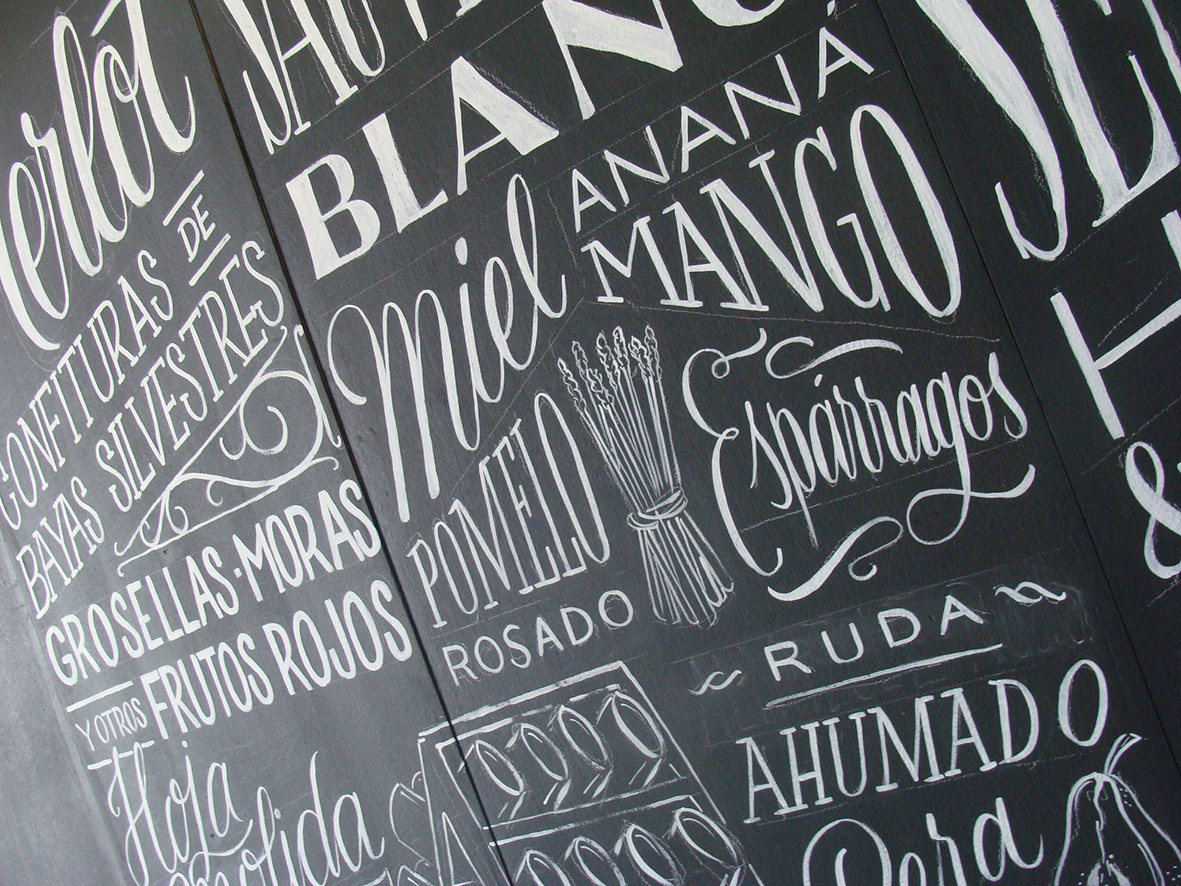 erlot
CONFITURAS DE
BAYAS SILVESTRES
GROSELLAS·MORAS
Y OTROS FRUTOS ROJOS
Hoja
BLANC
Miel
ANANÁ
MANGO
POMELO
ROSADO
Espárragos
~ RUDA ~
AHUMADO
Pera
&